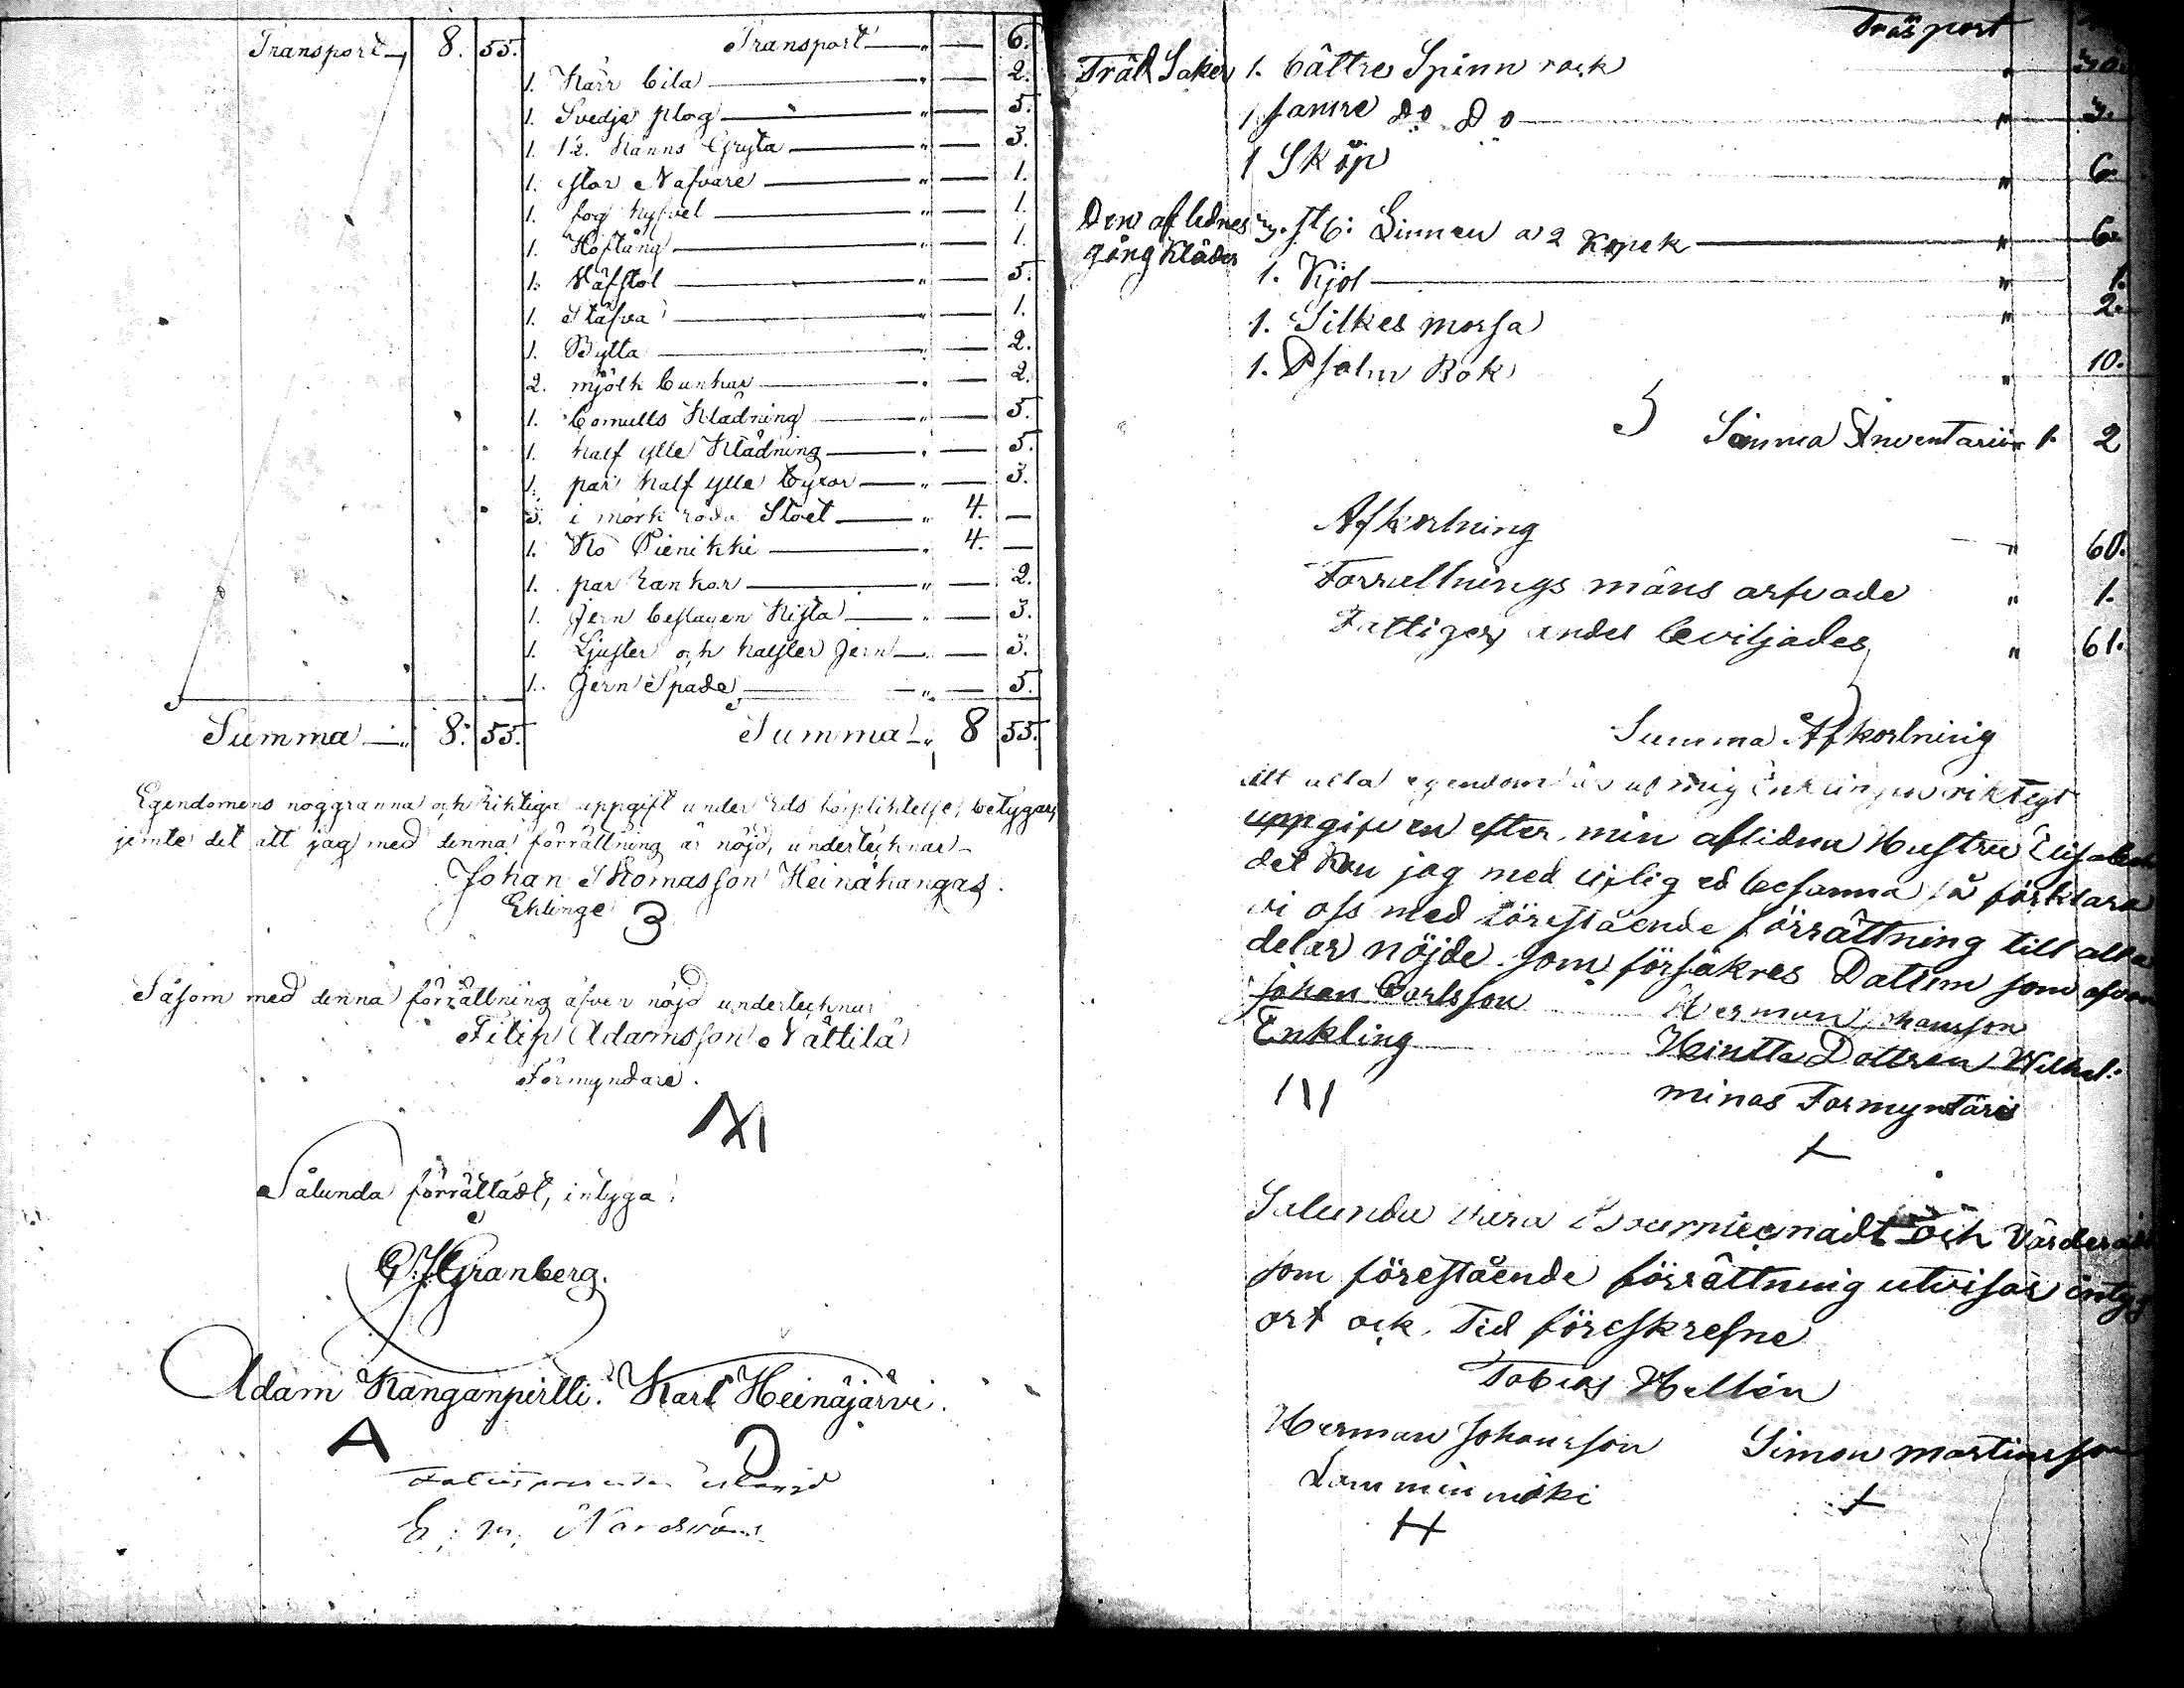 Transport 8. 55. Transport " — 6.
1. Kärr bila " — 2.
1. Svedje plog " — 5.
1. 12. Kanns Gryta " — 3.
1. stor Nafvare " — 1.
1. fog hyfvel " — 1.
1. Hoftång " — 1.
1. Väfstol " — 5.
1. Stäfva " — 1.
1. Bytta " — 2.
2. mjölk bunkar " — 2.
1. bomulls Klädning " — 5.
1. half ylle Klädning " — 5.
1. par half ylle byxor " — 3.
i mörk röda Stoet " 4. —
1. Ko Pienikki " 4. —
1. par rankor " — 2.
1. Jern beslagen Kista " — 3.
1. Ljuster och halster Jern " — 3.
1. Jern Spade " — 5.
Summa " 8. 55. Summa " 8 55.
Egendomens noggranna och riktiga uppgift under Eds förpliktelse, betygar,
jemte det att jag med denna förrättning är nöjd, undertecknar
Johan Thomasson Heinäkangas.
Enklinge
Såsom med denna förrättning äfven nöjd undertecknar
Filip Adamsson Nättilä
Förmyndare.
Sålunda förrättadt, intyga:
Granberg.
Adam Kanganpirtti. Karl Heinäjärvi.
A D
Träsport
Träd Saker 1. bättre Spinn rock " 30.
1 samre do do " 3.
1 Skåp " 6.
Den aflidnes 3. st: Linnen a 2 Kopek " 6
gång Kläder 1. Kjol " 1.
1. Silkes mössa " 2.
1. Psalm Bok " 10.
Summa Inventariin 1. 2
Afkortning " 60.
Forrettnings mäns arfvade " 1.
Fattigas andel beviljades " 61.
Summa Afkortning
Att alla egendom är af mig Enklingen riktigt
uppgifven efter min aflidna Hustru Elisabeth
det kan jag med lijflig ed besanna så förklara
vi oss med förestående förrättning till alla
delar nöjde som försäkres Dattum som ofvan
Johan Carlsson Herman Johansson
Enkling Heintta Dottren Wilhel:
minas Formyntäre
Salunda vara och Värderadt
som förestående förrättning utvisar intyg
ort ock Tid föreskrefne
Tobias Hellén
Herman Johansson Simon Martinsson
Lamminmäki